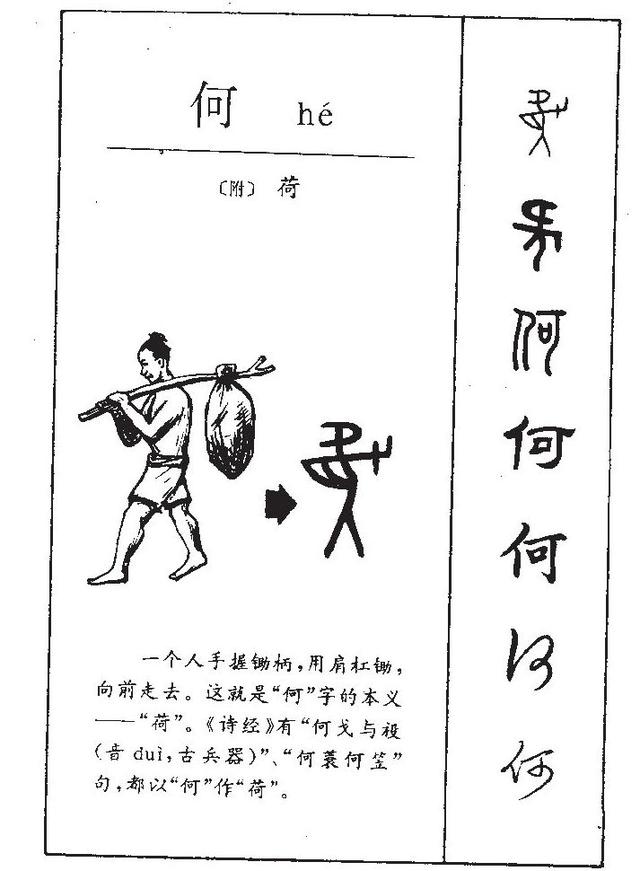 何 hé
〔附〕 荷
一个人手握锄柄，用肩杠锄，
向前走去。这就是“何”字的本义
——“荷”。《诗经》有“何戈与祋
（音 duì，古兵器）”、“何蓑何笠”
句，都以“何”作“荷”。
何
何
何
何
何